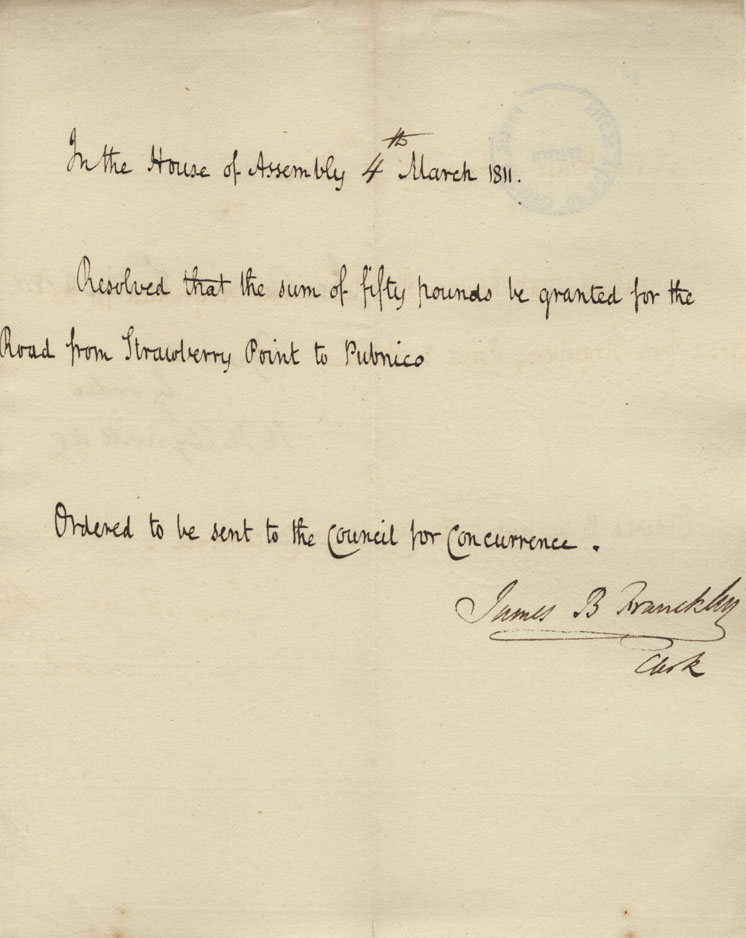 In the House of Assembly 4th March 1811.
Resolved that the sum of fifty pounds be granted for the
Road from Strawberry Point to Pubnico
Ordered to be sent to the Council for Concurrence.
James B Franckling
Clerk